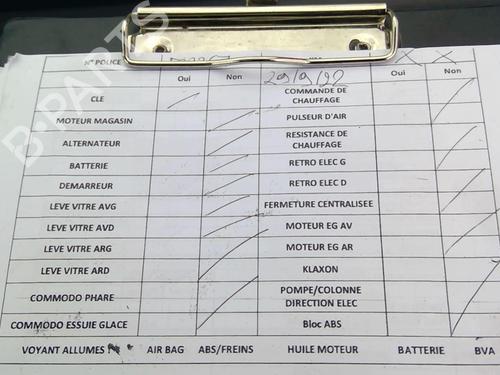 N° POLICE
Oui Non 29/9/22 Oui Non
CLE COMMANDE DE CHAUFFAGE
MOTEUR MAGASIN PULSEUR D'AIR
ALTERNATEUR RESISTANCE DE CHAUFFAGE
BATTERIE RETRO ELEC G
DEMARREUR RETRO ELEC D
LEVE VITRE AVG FERMETURE CENTRALISEE
LEVE VITRE AVD MOTEUR EG AV
LEVE VITRE ARG MOTEUR EG AR
LEVE VITRE ARD KLAXON
COMMODO PHARE POMPE/COLONNE DIRECTION ELEC
COMMODO ESSUIE GLACE Bloc ABS
VOYANT ALLUMES : AIR BAG ABS/FREINS HUILE MOTEUR BATTERIE BVA
B-PARTS